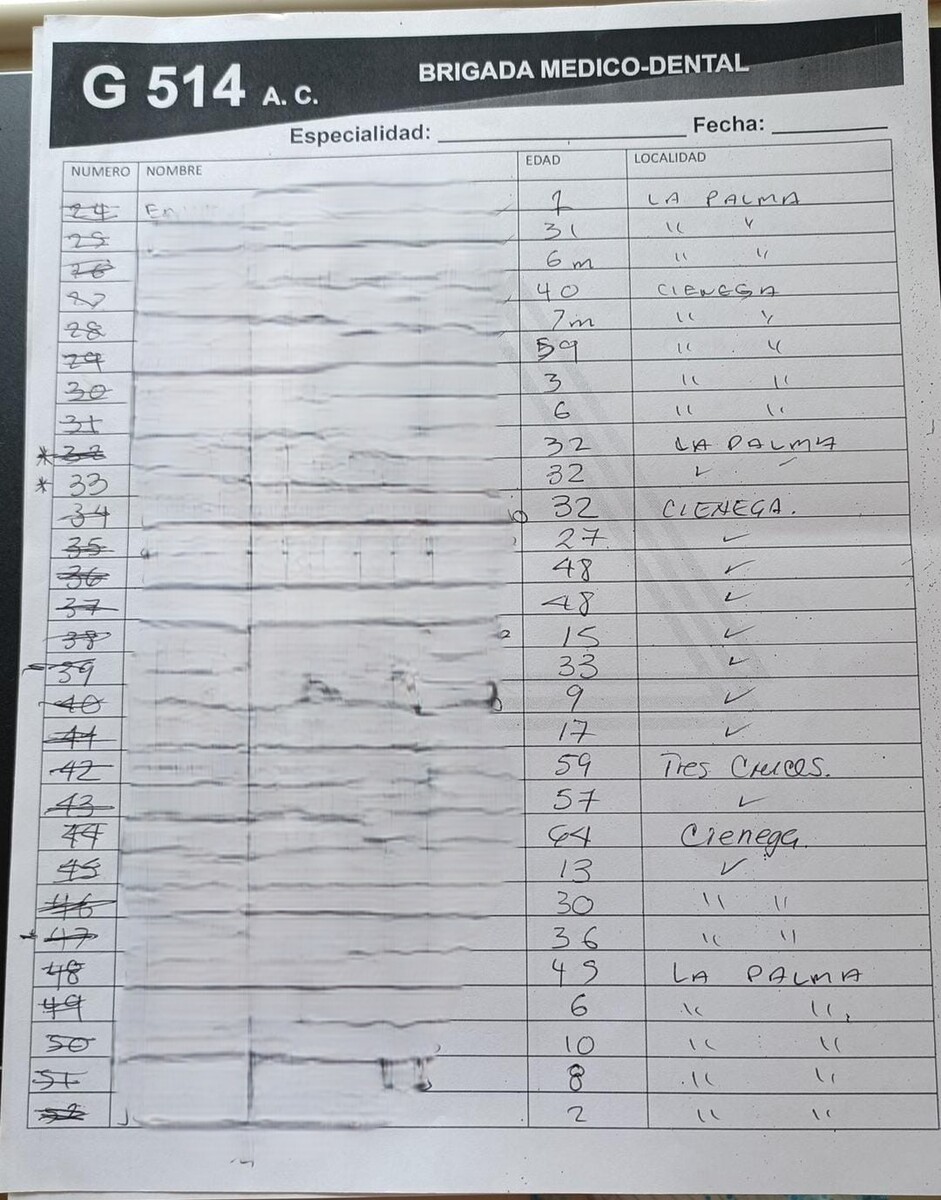 G 514 A. C. BRIGADA MEDICO-DENTAL
Especialidad: Fecha:
NUMERO NOMBRE EDAD LOCALIDAD
24 1 LA PALMA
25 31 " "
26 6m " "
27 40 CIENEGA
28 7m " "
29 59 " "
30 3 " "
31 6 " "
* 32 32 LA PALMA
* 33 32 ✓ -
34 32 CIENEGA.
35 27 ✓
36 48 ✓
37 48 ✓
38 15 ✓
39 33 ✓
40 9 ✓
41 17 ✓
42 59 Tres Cruces.
43 57 ✓
44 64 Cienega
45 13 ✓
46 30 " "
47 36 " "
48 45 LA PALMA
49 6 " "
50 10 " "
51 8 " "
52 2 " "